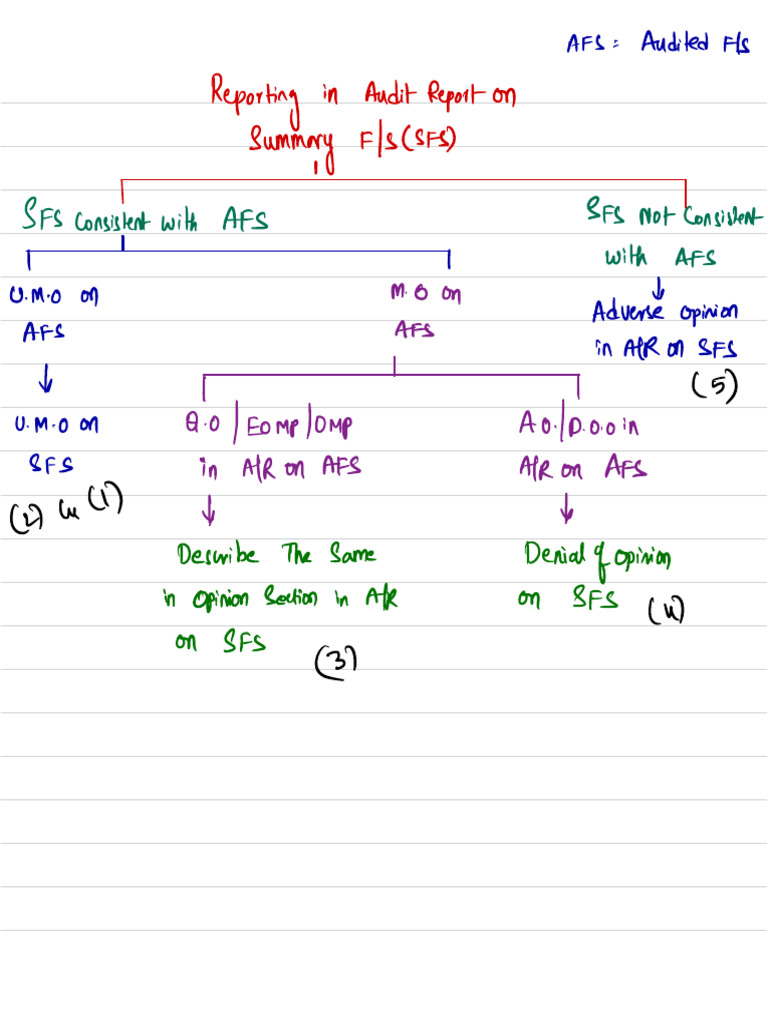 AFS = Audited F/S
Reporting in Audit Report on
Summary F/S (SFS)
SFS Consistent with AFS
SFS Not Consistent
with AFS
U.M.O on
AFS
M.O on
AFS
Adverse Opinion
in A/R on SFS
(5)
U.M.O on
SFS
(2) (1)
Q.O / EOMP / OMP
in A/R on AFS
A.O. / D.O.O in
A/R on AFS
Describe The Same
in Opinion Section in A/R
on SFS
(3)
Denial of Opinion
on SFS
(4)